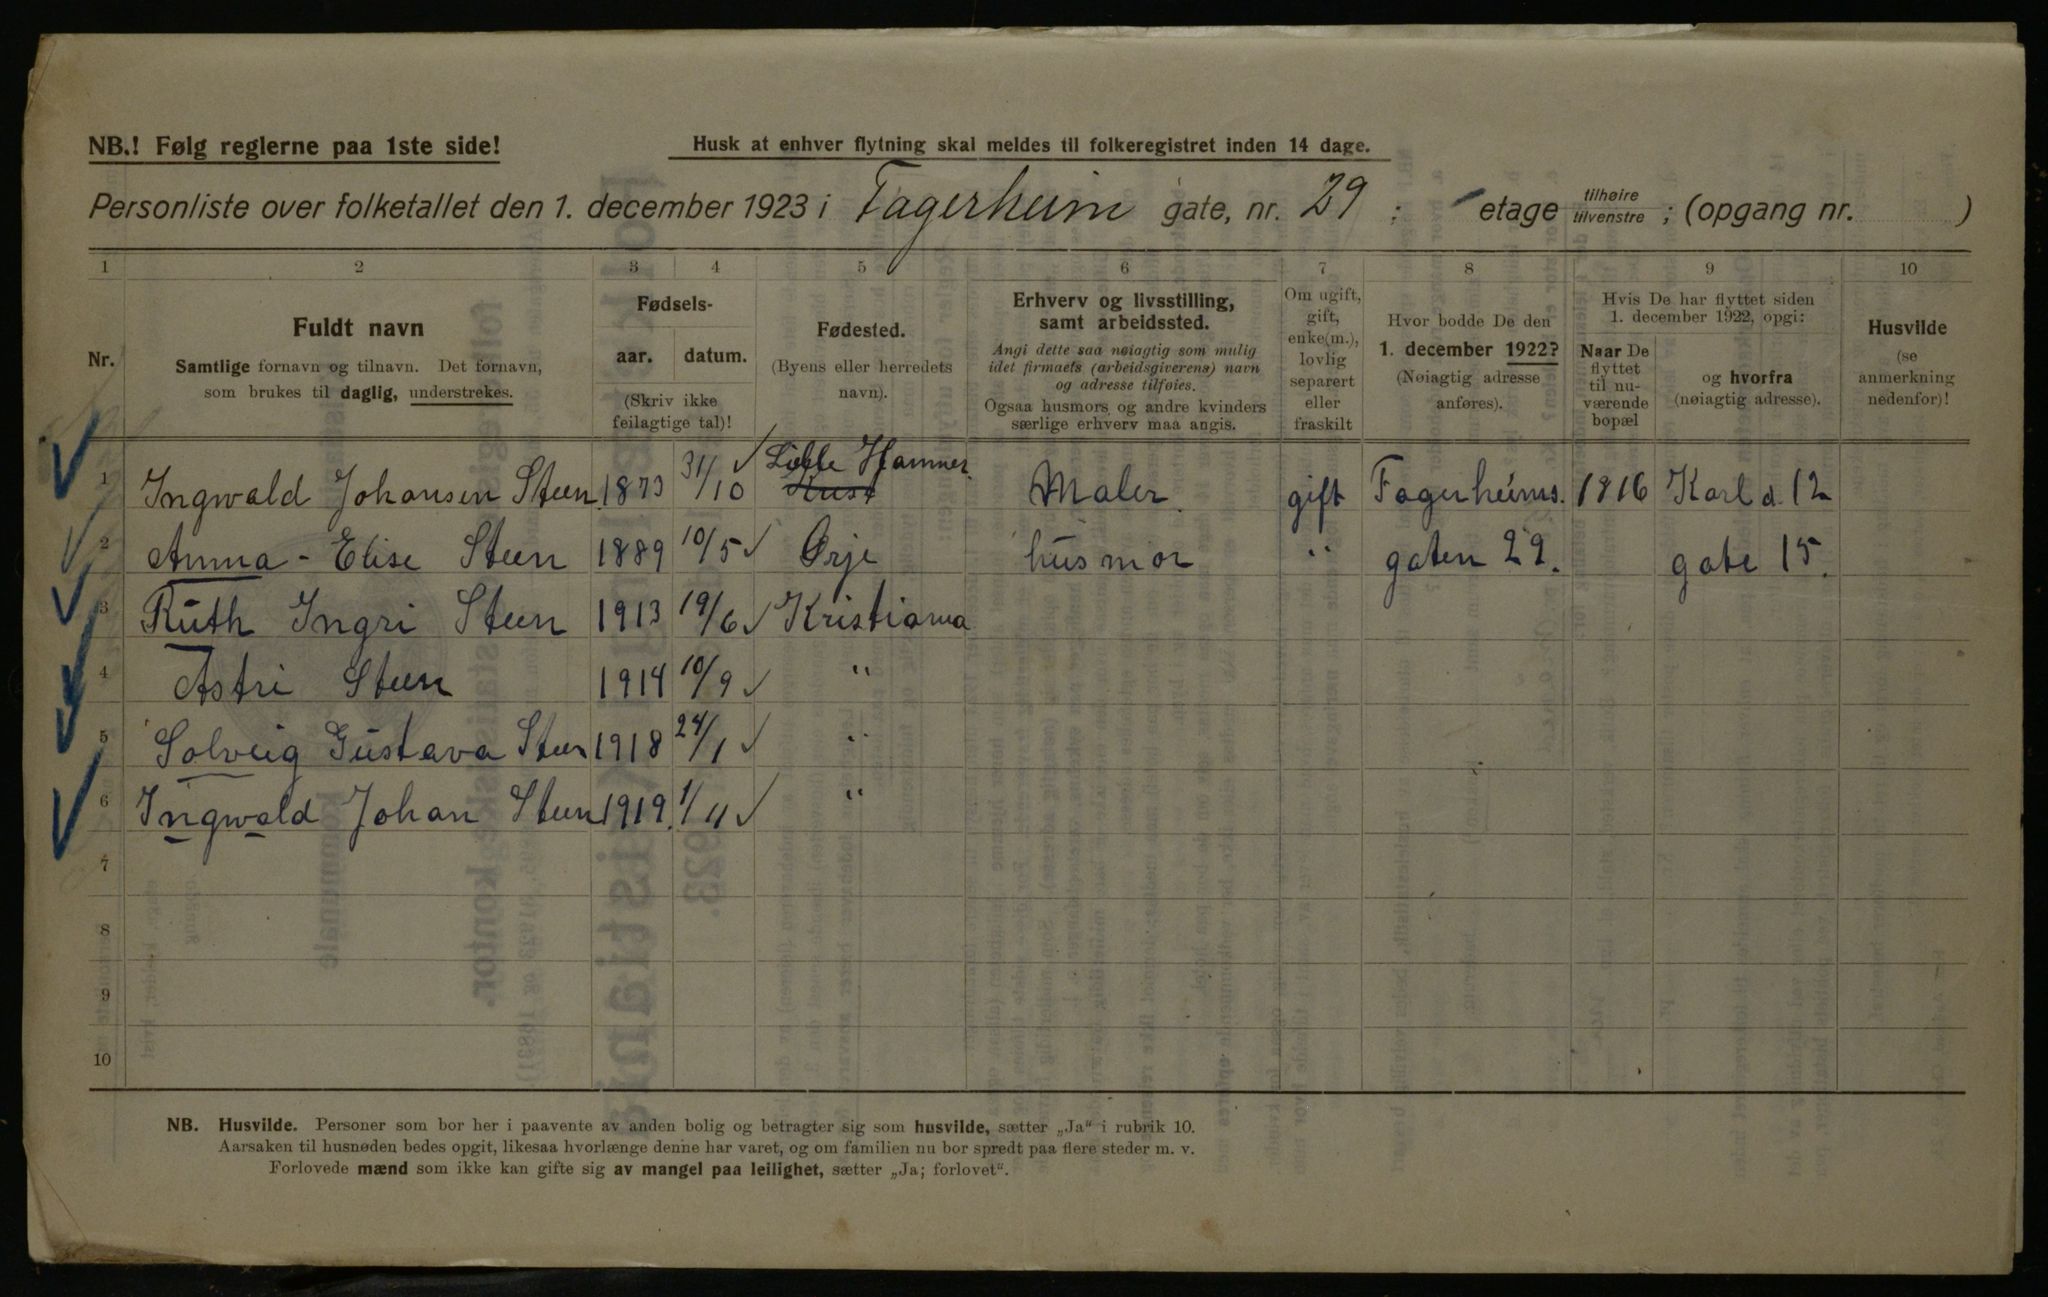 NB.! Følg reglerne paa 1ste side!
Husk at enhver flytning skal meldes til folkeregistret inden 14 dage.
Personliste over folketallet den 1. december 1923 i Fagerheim gate, nr. 29 ; etage tilhøire tilvenstre ; (opgang nr. )
1 2 3 4 5 6 7 8 9 10
Nr.
Fuldt navn
Samtlige fornavn og tilnavn. Det fornavn,
som brukes til daglig, understrekes.
Fødsels-
aar. datum.
(Skriv ikke
feilagtige tal)!
Fødested.
(Byens eller herredets
navn).
Erhverv og livsstilling,
samt arbeidssted.
Angi dette saa nøiagtig som mulig
idet firmaets (arbeidsgiverens) navn
og adresse tilføies.
Ogsaa husmors og andre kvinders
særlige erhverv maa angis.
Om ugift,
gift,
enke(m.),
lovlig
separert
eller
fraskilt
Hvor bodde De den
1. december 1922?
(Nøiagtig adresse
anføres).
Hvis De har flyttet siden
1. december 1922, opgi:
Naar De
flyttet
til nu-
værende
bopæl
og hvorfra
(nøiagtig adresse).
Husvilde
(se
anmerkning
nedenfor)!
1 Ingwald Johansen Steen 1873 31/10 Lille Hammer Maler gift Fagerheims. 1916 Karl d. 12
2 Anna - Elise Steen 1889 10/5 Ørje husmor " gaten 29. gate 15.
3 Ruth Ingri Steen 1913 19/6 Kristiania
4 Astri Steen 1914 10/9 "
5 Solveig Gustava Steen 1918 24/1 "
6 Ingwald Johan Steen 1919. 1/11 "
7
8
9
10
NB. Husvilde. Personer som bor her i paavente av anden bolig og betragter sig som husvilde, sætter „Ja" i rubrik 10.
Aarsaken til husnøden bedes opgit, likesaa hvorlænge denne har varet, og om familien nu bor spredt paa flere steder m. v.
Forlovede mænd som ikke kan gifte sig av mangel paa leilighet, sætter „Ja; forlovet".